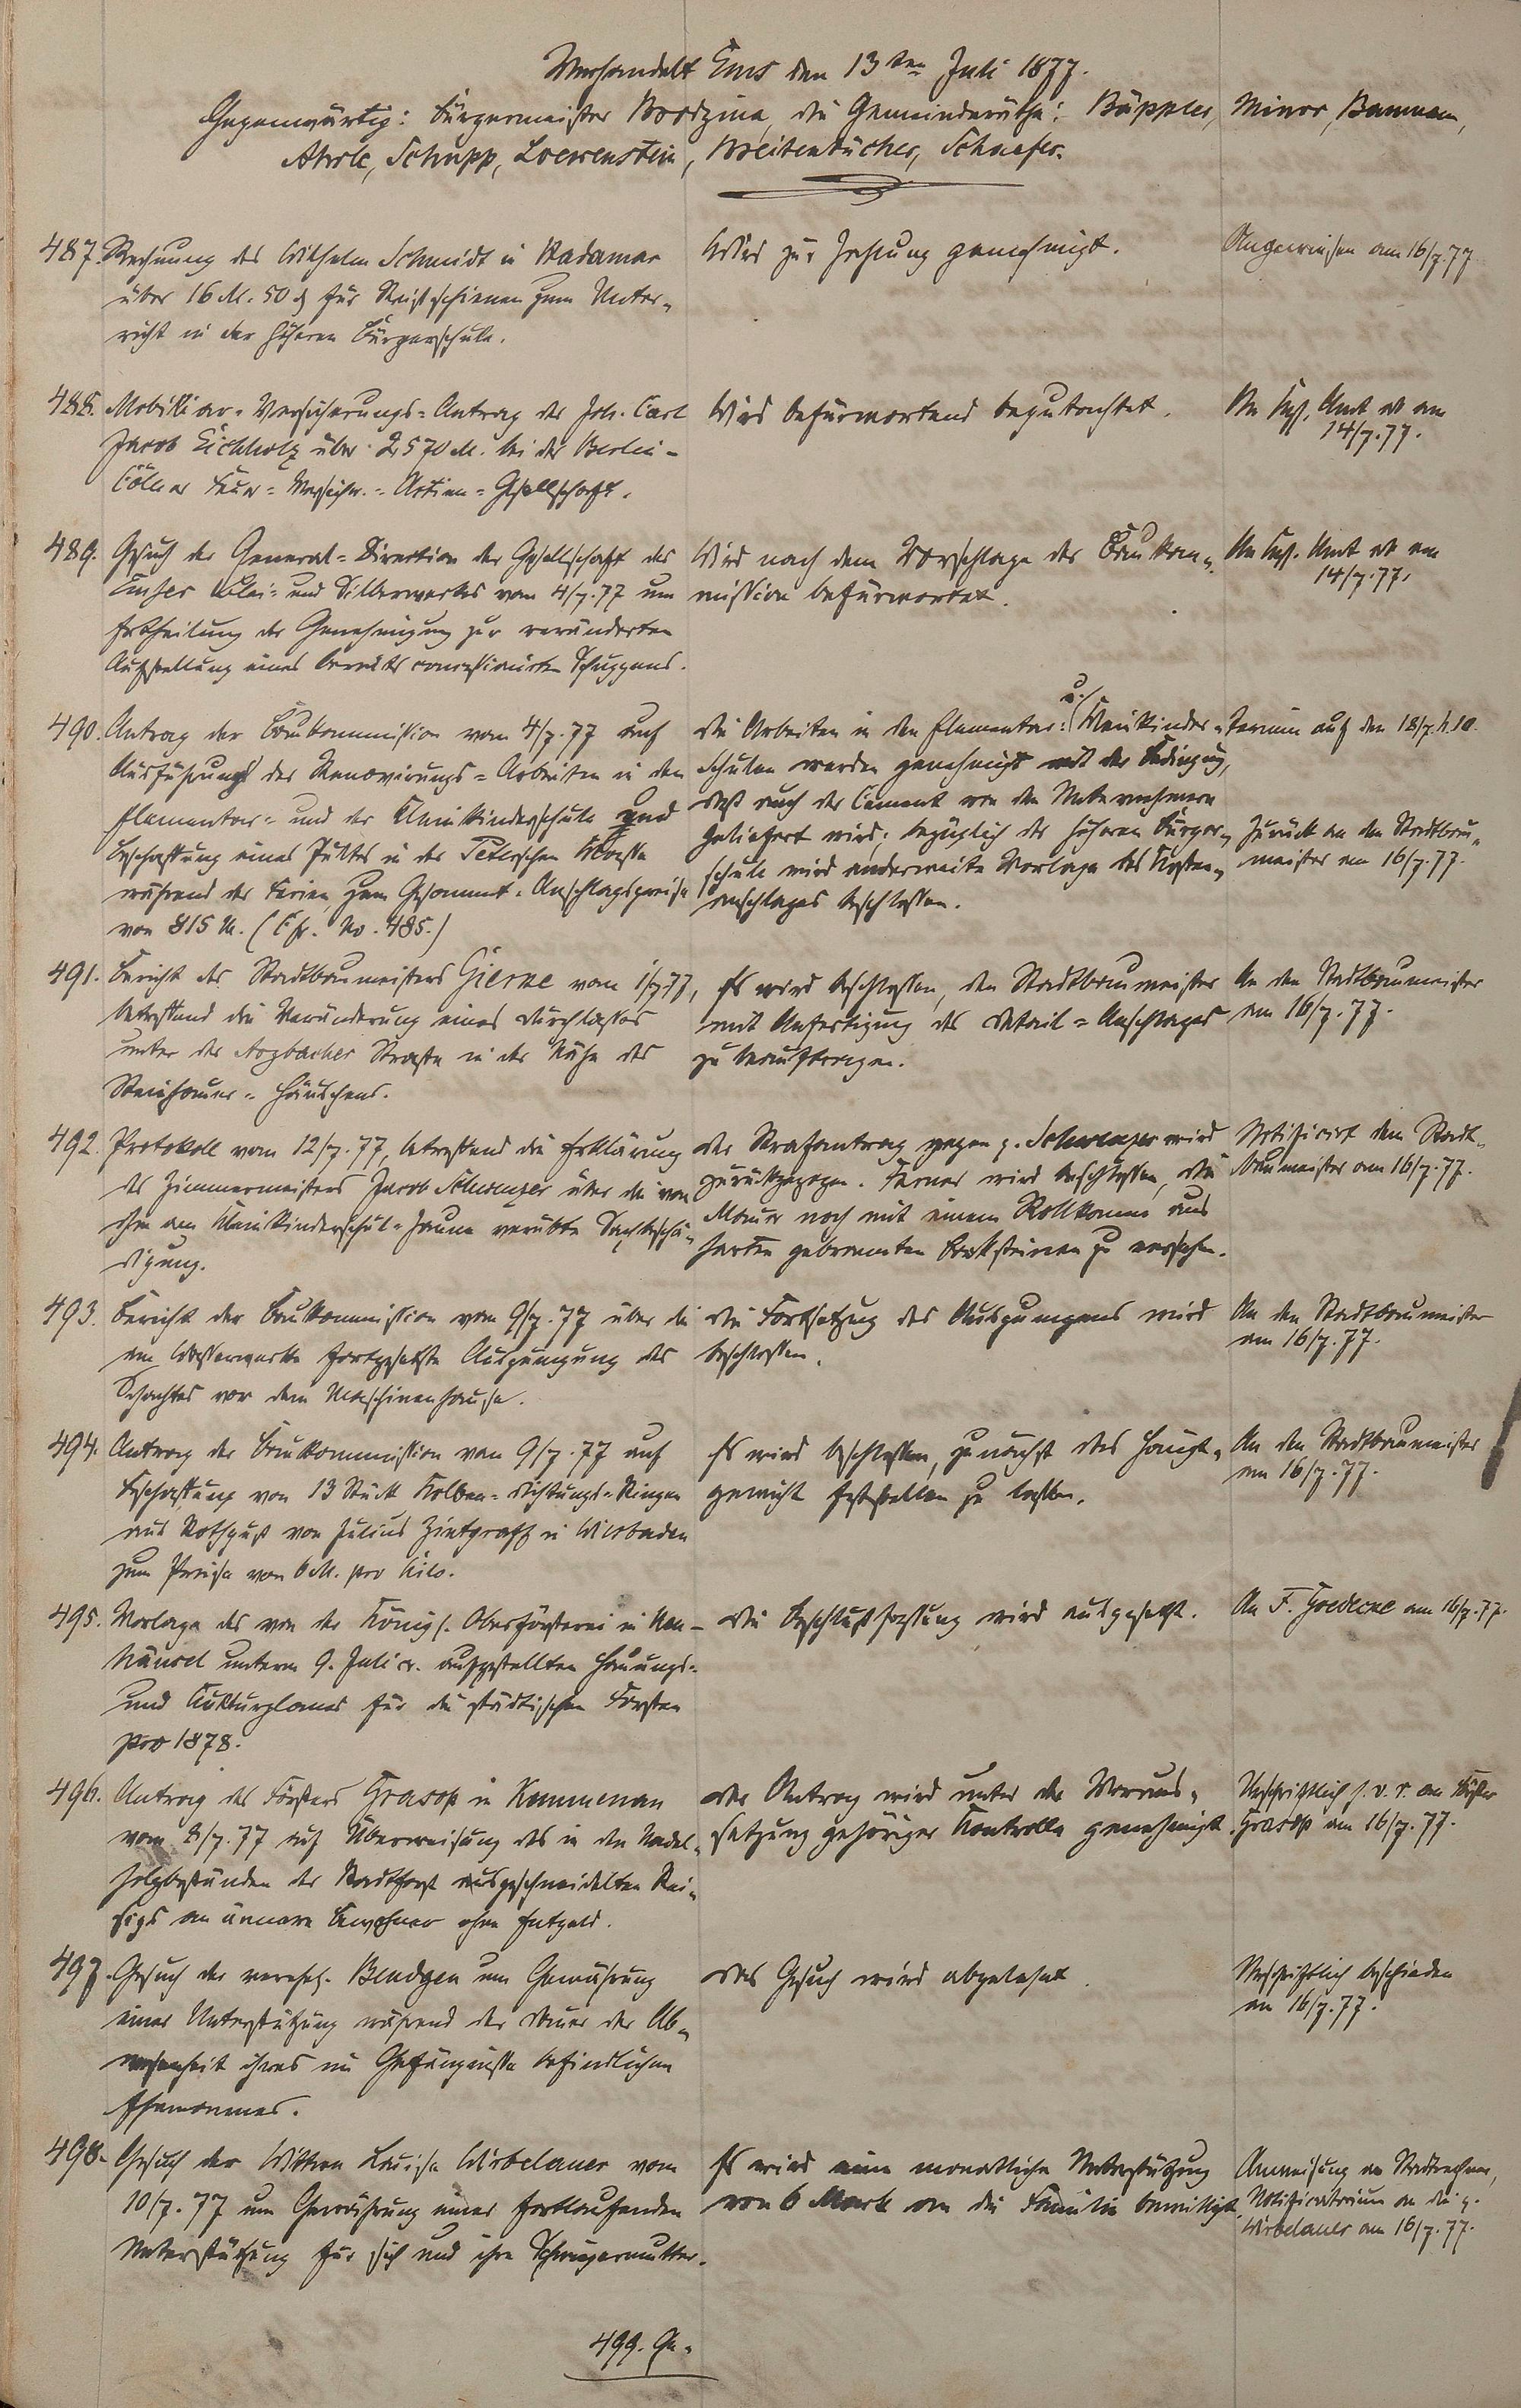 Verhandelt Ems den 13ten Juli 1877.
Gegenwärtig: Bürgermeister Wodzina, die Gemeinderäthe: Bäppler, Minor, Baumann,
Ahrle, Schupp, Loewenstein, Breitenbücher, Schaefer.
487. Rechnung des Wilhelm Schmidt in Hadamar
über 16 M. 50 d für Reißschienen zum Unter-
richt in der höheren Bürgerschule.
Wird zur Zahlung genehmigt.
Angewiesen am 16/7.77
488. Mobiliar-Versicherungs-Antrag des Joh. Carl
Jacob Eichholz über 2570 M. bei der Berlin-
Cölner Feuer-Versicher.-Actien-Gesellschaft.
Wird befürwortend begutachtet.
An Kgl. Amt ab am
14/7.77.
489. Gesuch der General-Direction der Gesellschaft des
Emser Blei- und Silberwerks vom 4/7.77 um
Ertheilung der Genehmigung zur veränderten
Aufstellung eines bereits concessionirten Schuppens.
Wird nach dem Vorschlage der Baukom-
mission befürwortet.
An Kgl. Amt ab am
14/7.77.
490. Antrag der Baukommission vom 4/7.77 auf
Ausführung der Renovirungs-Arbeiten in den
Elementar- und der Kleinkinderschule und
Beschaffung eines Pultes in der Klasse
während der Ferien zum Gesammt-Anschlagspreise
von 815 M. (Cfr. No. 485.)
Die Arbeiten in den Elementar- u. Kleinkinder-
schulen werden genehmigt mit der Bedingung,
daß auch der Cement von den Unternehmern
geliefert wird; bezüglich der höheren Bürger-
schule wird anderweite Vorlage des Kosten-
anschlages beschlossen.
Termin auf den 18/7 h. 10.
Zurück an den Stadtbau-
meister am 16/7.77.
491. Bericht des Stadtbaumeisters Gierke vom 1/7.77,
betreffend die Veränderung eines Durchlasses
unter der Arzbacher Straße in der Nähe des
Steinhauer-Häuschens.
Es wird beschlossen, den Stadtbaumeister
mit Anfertigung des Detail-Anschlages
zu beauftragen.
An den Stadtbaumeister
am 16/7.77.
492. Protokoll vom 12/7.77, betreffend die Erklärung
des Zimmermeisters Jacob Schwenzer über die von
ihm am Kleinkinderschul-Zaune verübte Sachbeschä-
digung.
Der Strafantrag gegen p. Schwenzer wird
zurückgezogen. Ferner wird beschlossen, die
Mauer noch mit einem Rollkamm aus
harten gebrannten Backsteinen zu versehen.
Notificirt dem Stadt-
baumeister am 16/7.77.
493. Bericht der Baukommission vom 9/7.77 über die
am Wasserwerke fortgesetzte Auspumpung des
Schachtes vor dem Maschinenhause.
Die Fortsetzung des Auspumpens wird
beschlossen.
An den Stadtbaumeister
am 16/7.77.
494. Antrag der Baukommission vom 9/7.77 auf
Beschaffung von 13 Stück Kolben-Dichtungs-Ringen
aus Rothguß von Julius Zintgraff in Wiesbaden
zum Preise von 6 M. pro Kilo.
Es wird beschlossen, zunächst das Haupt-
gewicht feststellen zu lassen.
An den Stadtbaumeister
am 16/7.77.
495. Vorlage des von der Königl. Oberförsterei in Neu-
häusel unterm 9. Juli cr. aufgestellten Hauungs-
und Kulturplanes für die städtischen Forsten
pro 1878.
Die Beschlußfassung wird ausgesetzt.
An F. Goedecke am 16/7.77.
496. Antrag des Försters Grasop in Kemmenau
vom 8/7.77 auf Überweisung des in den Nadel-
holzbeständen der Stadtforst ausgeschneidelten Rei-
sigs an ärmere Bewohner ohne Entgeld.
Der Antrag wird unter der Voraus-
setzung gehöriger Kontrolle genehmigt.
Urschriftlich s. v. r. an Förster
Grasop am 16/7.77.
497. Gesuch der verehel. Bendgen um Gewährung
einer Unterstützung während der Dauer der Ab-
wesenheit ihres im Gefängnisse befindlichen
Ehemannes.
Das Gesuch wird abgelehnt.
Urschriftlich beschieden
am 16/7.77.
498. Gesuch der Wittwe Louise Wirbelauer vom
10/7.77 um Gewährung einer fortlaufenden
Unterstützung für sich und ihre Schwiegermutter.
Es wird eine monatliche Unterstützung
von 6 Mark an die Familie bewilligt.
Anweisung an Stadtrechner,
Notificatorium an die p.
Wirbelauer am 16/7.77.
499. Ge-